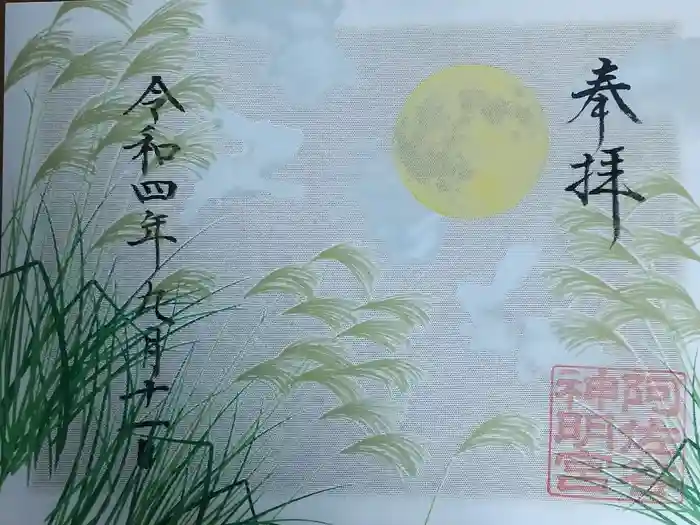 奉拝
阿佐谷
神明宮
令和四年九月十一日